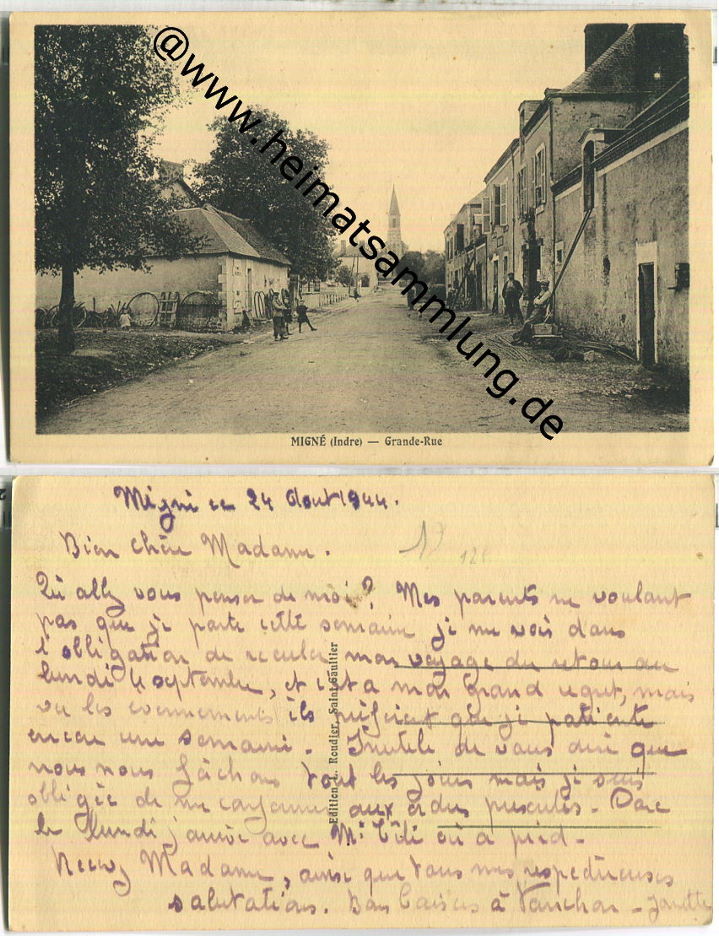 @www.heimatsammlung.de
MIGNÉ (Indre) — Grande-Rue
Migné ce 24 Aout 1944.
Bien chère Madame.
Qu'allez vous penser de moi? Mes parents ne voulant
pas que je parte cette semaine je me vois dans
l'obligation de reculer mon voyage du retour au
lundi 4 septembre, et c'est a mon grand regret, mais
vu les évennements ils préfèrent que je patiente
encore une semaine. Inutile de vous dire que
nous nous fâchons tout les jours mais je suis
obligée de me conformer aux ordres Donc
le lundi j'arrive avec Mr où a pied.
Recevez Madame, ainsi que tous mes respectueuses
salutations. Bons baisers à - Janette
Edition L. Roudier, Saint-Gaultier